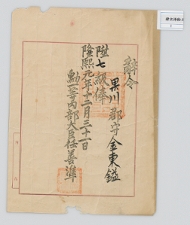 辭令
果川郡守金東鎰
陞七級俸
隆熙元年十二月三十一日
勳一等內部大臣任善準